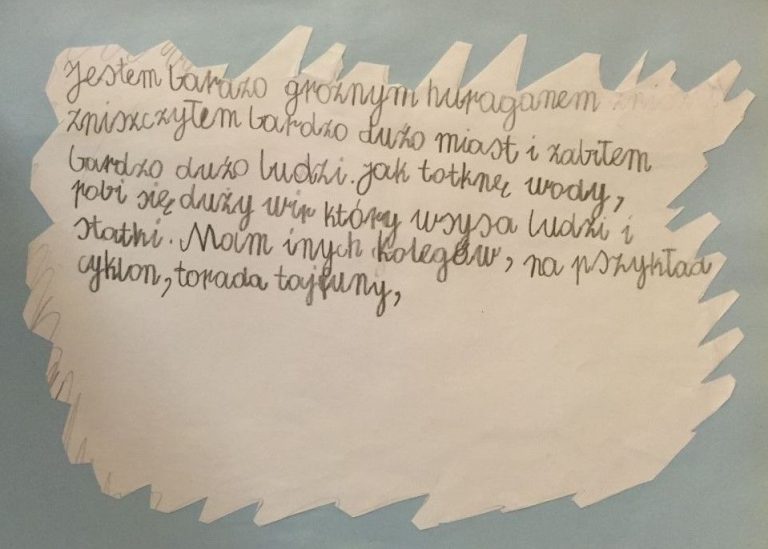 Jestem bardzo groźnym huraganem
zniszczyłem bardzo dużo miast i zabiłem
bardzo dużo ludzi. Jak totknę wody,
robi się duży wir który wsysa ludzi i
statki. Mam inych kolegów, na pszykład
cyklon, torada tajfuny,